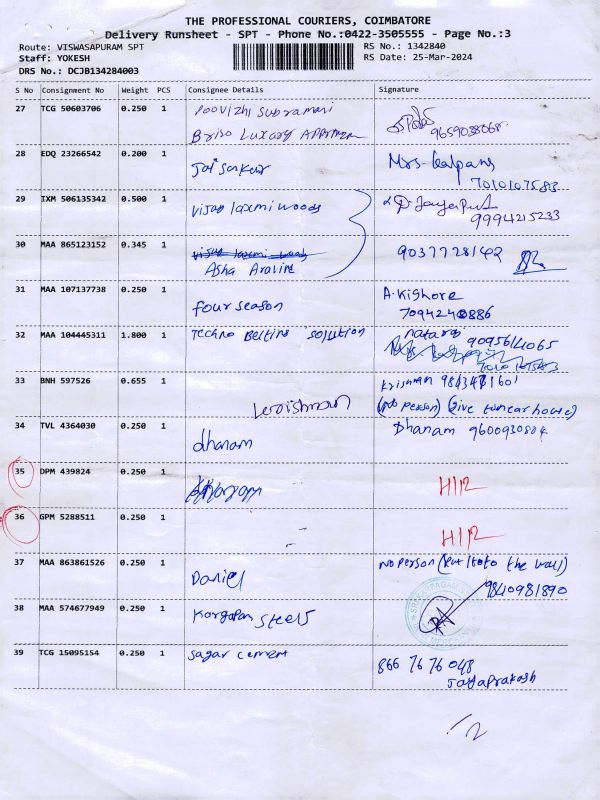 THE PROFESSIONAL COURIERS, COIMBATORE
Delivery Runsheet - SPT - Phone No.:0422-3505555 - Page No.:3
Route: VISWASAPURAM SPT
RS No.: 1342840
Staff: YOKESH
RS Date: 25-Mar-2024
DRS No.: DCJB134284003
S No Consignment No Weight PCS Consignee Details Signature
27 TCG 50603706 0.250 1 Poovizhi Subramani
Briso Luxary Appartmen
9659038068
28 EDQ 23266542 0.200 1 Jai Sankar Mrs. kalpana
7010107583
29 IXM 506135342 0.500 1 vijay laxmi woods
9994215233
30 MAA 865123152 0.345 1 vijay laxmi woods 9037728142
Asha Aravind
31 MAA 107137738 0.250 1 four season A. Kishore
32 MAA 104445311 1.800 1 Techno Belting solution nataraj 9095614065
33 BNH 597526 0.655 1 krishnan
34 TVL 4364030 0.250 1 dhanam Dhanam 9600930804
35 DPM 439824 0.250 1 H12
36 GPM 5288511 0.250 1 H12
37 MAA 863861526 0.250 1 Daniel no person the wall)
9840981890
38 MAA 574677949 0.250 1 steels
39 TCG 15095154 0.250 1 sagar cement 866 76 76 048
Jayaprakash